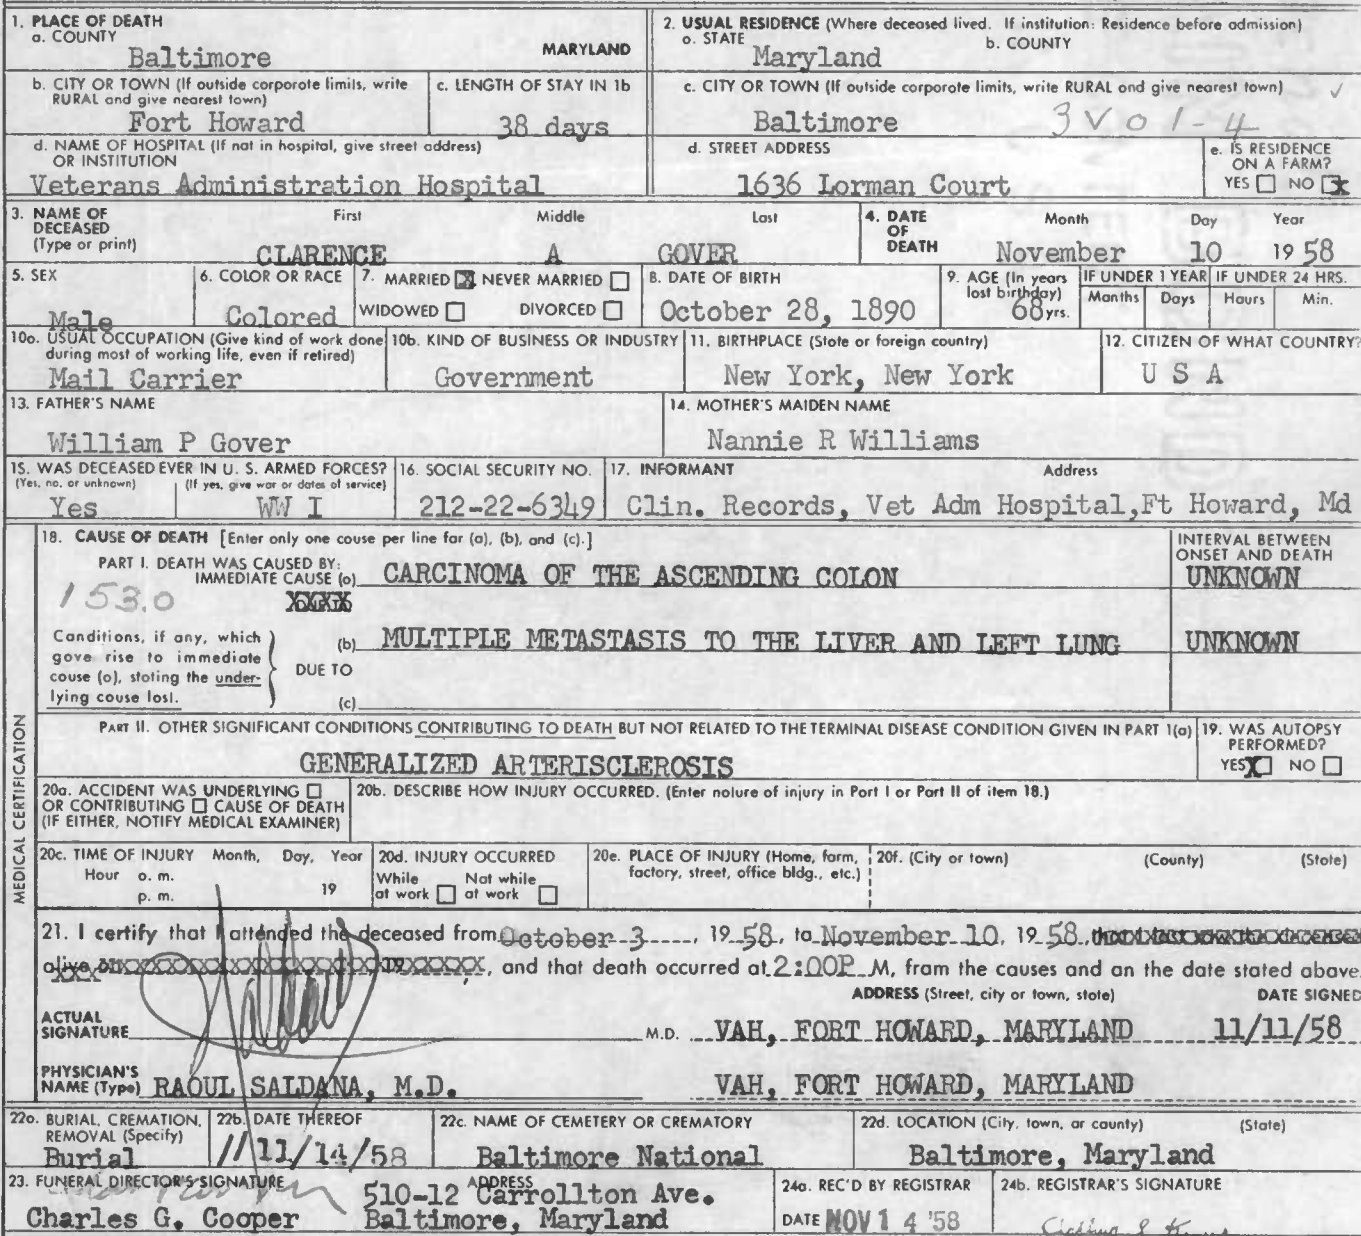 1. PLACE OF DEATH
a. COUNTY
Baltimore MARYLAND
2. USUAL RESIDENCE (Where deceased lived. If institution: Residence before admission)
a. STATE b. COUNTY
Maryland
b. CITY OR TOWN (If outside corporate limits, write RURAL and give nearest town)
Fort Howard
c. LENGTH OF STAY IN 1b
38 days
c. CITY OR TOWN (If outside corporate limits, write RURAL and give nearest town)
Baltimore 3 V 0 1-4
d. NAME OF HOSPITAL (If not in hospital, give street address)
OR INSTITUTION
Veterans Administration Hospital
d. STREET ADDRESS
1636 Lorman Court
e. IS RESIDENCE
ON A FARM?
YES NO X
3. NAME OF
DECEASED
(Type or print)
First Middle Last
CLARENCE A GOVER
4. DATE
OF
DEATH
Month Day Year
November 10 19 58
5. SEX
Male
6. COLOR OR RACE
Colored
7. MARRIED X NEVER MARRIED
WIDOWED DIVORCED
8. DATE OF BIRTH
October 28, 1890
9. AGE (In years
last birthday)
68 yrs.
IF UNDER 1 YEAR IF UNDER 24 HRS.
Months Days Hours Min.
10a. USUAL OCCUPATION (Give kind of work done
during most of working life, even if retired)
Mail Carrier
10b. KIND OF BUSINESS OR INDUSTRY
Government
11. BIRTHPLACE (State or foreign country)
New York, New York
12. CITIZEN OF WHAT COUNTRY?
U S A
13. FATHER'S NAME
William P Gover
14. MOTHER'S MAIDEN NAME
Nannie R Williams
15. WAS DECEASED EVER IN U. S. ARMED FORCES?
(Yes, no, or unknown) (If yes, give war or dates of service)
Yes WW I
16. SOCIAL SECURITY NO.
212-22-6349
17. INFORMANT Address
Clin. Records, Vet Adm Hospital,Ft Howard, Md
MEDICAL CERTIFICATION
18. CAUSE OF DEATH [Enter only one cause per line for (a), (b), and (c).]
INTERVAL BETWEEN
ONSET AND DEATH
PART I. DEATH WAS CAUSED BY:
IMMEDIATE CAUSE (a) CARCINOMA OF THE ASCENDING COLON UNKNOWN
153.0 XXXX
Conditions, if any, which
gave rise to immediate
cause (a), stating the under-
lying cause last.
(b) MULTIPLE METASTASIS TO THE LIVER AND LEFT LUNG UNKNOWN
DUE TO
(c)
PART II. OTHER SIGNIFICANT CONDITIONS CONTRIBUTING TO DEATH BUT NOT RELATED TO THE TERMINAL DISEASE CONDITION GIVEN IN PART 1(a)
GENERALIZED ARTERISCLEROSIS
19. WAS AUTOPSY
PERFORMED?
YES X NO
20a. ACCIDENT WAS UNDERLYING
OR CONTRIBUTING CAUSE OF DEATH
(IF EITHER, NOTIFY MEDICAL EXAMINER)
20b. DESCRIBE HOW INJURY OCCURRED. (Enter nature of injury in Part I or Part II of item 18.)
20c. TIME OF INJURY Month, Day, Year
Hour a. m.
p. m. 19
20d. INJURY OCCURRED
While at work Not while at work
20e. PLACE OF INJURY (Home, farm,
factory, street, office bldg., etc.)
20f. (City or town) (County) (State)
21. I certify that I attended the deceased from October 3, 19 58, to November 10, 19 58,
alive on, and that death occurred at 2:00P M, from the causes and on the date stated above.
ADDRESS (Street, city or town, state) DATE SIGNED
ACTUAL
SIGNATURE M.D. VAH, FORT HOWARD, MARYLAND 11/11/58
PHYSICIAN'S
NAME (Type) RAOUL SALDANA, M.D. VAH, FORT HOWARD, MARYLAND
22a. BURIAL, CREMATION,
REMOVAL (Specify)
Burial
22b. DATE THEREOF
11/14/58
22c. NAME OF CEMETERY OR CREMATORY
Baltimore National
22d. LOCATION (City, town, or county) (State)
Baltimore, Maryland
23. FUNERAL DIRECTOR'S SIGNATURE ADDRESS
Charles G. Cooper
510-12 Carrollton Ave.
Baltimore, Maryland
24a. REC'D BY REGISTRAR
DATE NOV 14 '58
24b. REGISTRAR'S SIGNATURE